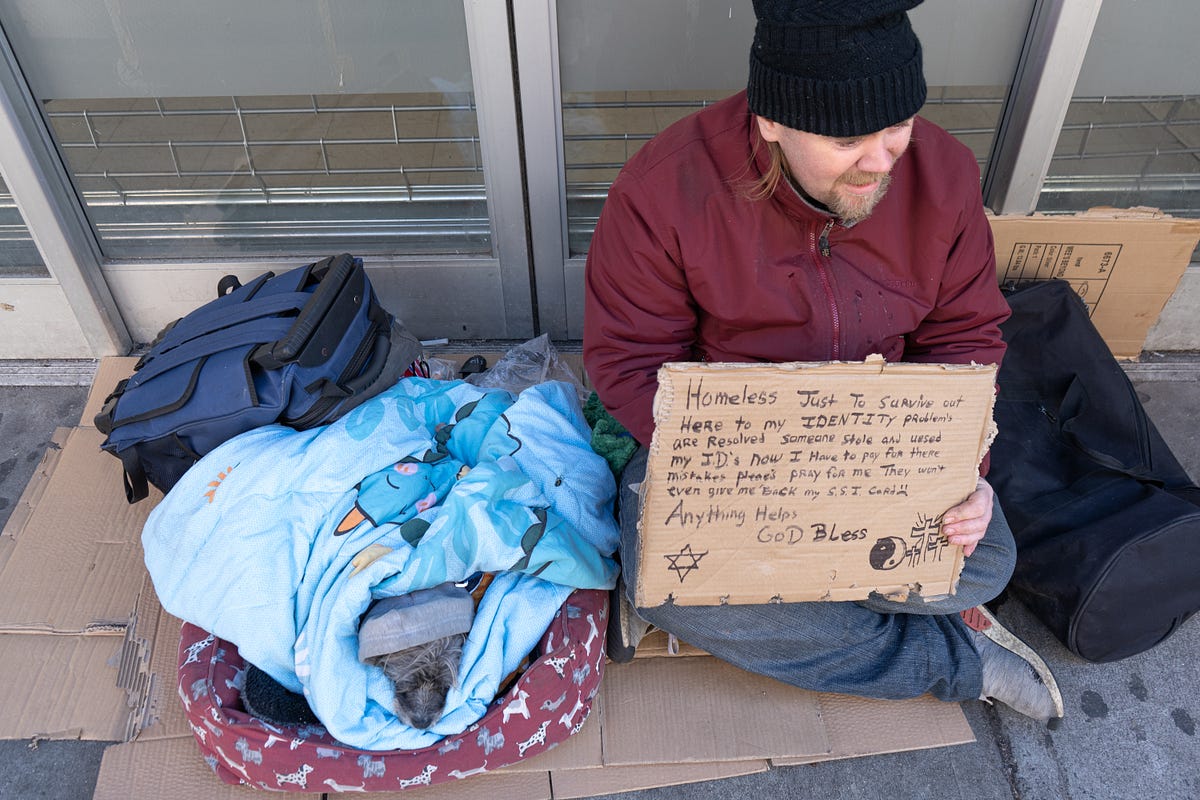 Homeless Just To Survive out
Here to my IDENTITY Problem's
are Resolved someone stole and uesed
my I.D.'s now I Have to pay for there
mistakes pray for me They won't
even give me Back my S.S.I Card!!
Anything Helps
GOD Bless
6673-A